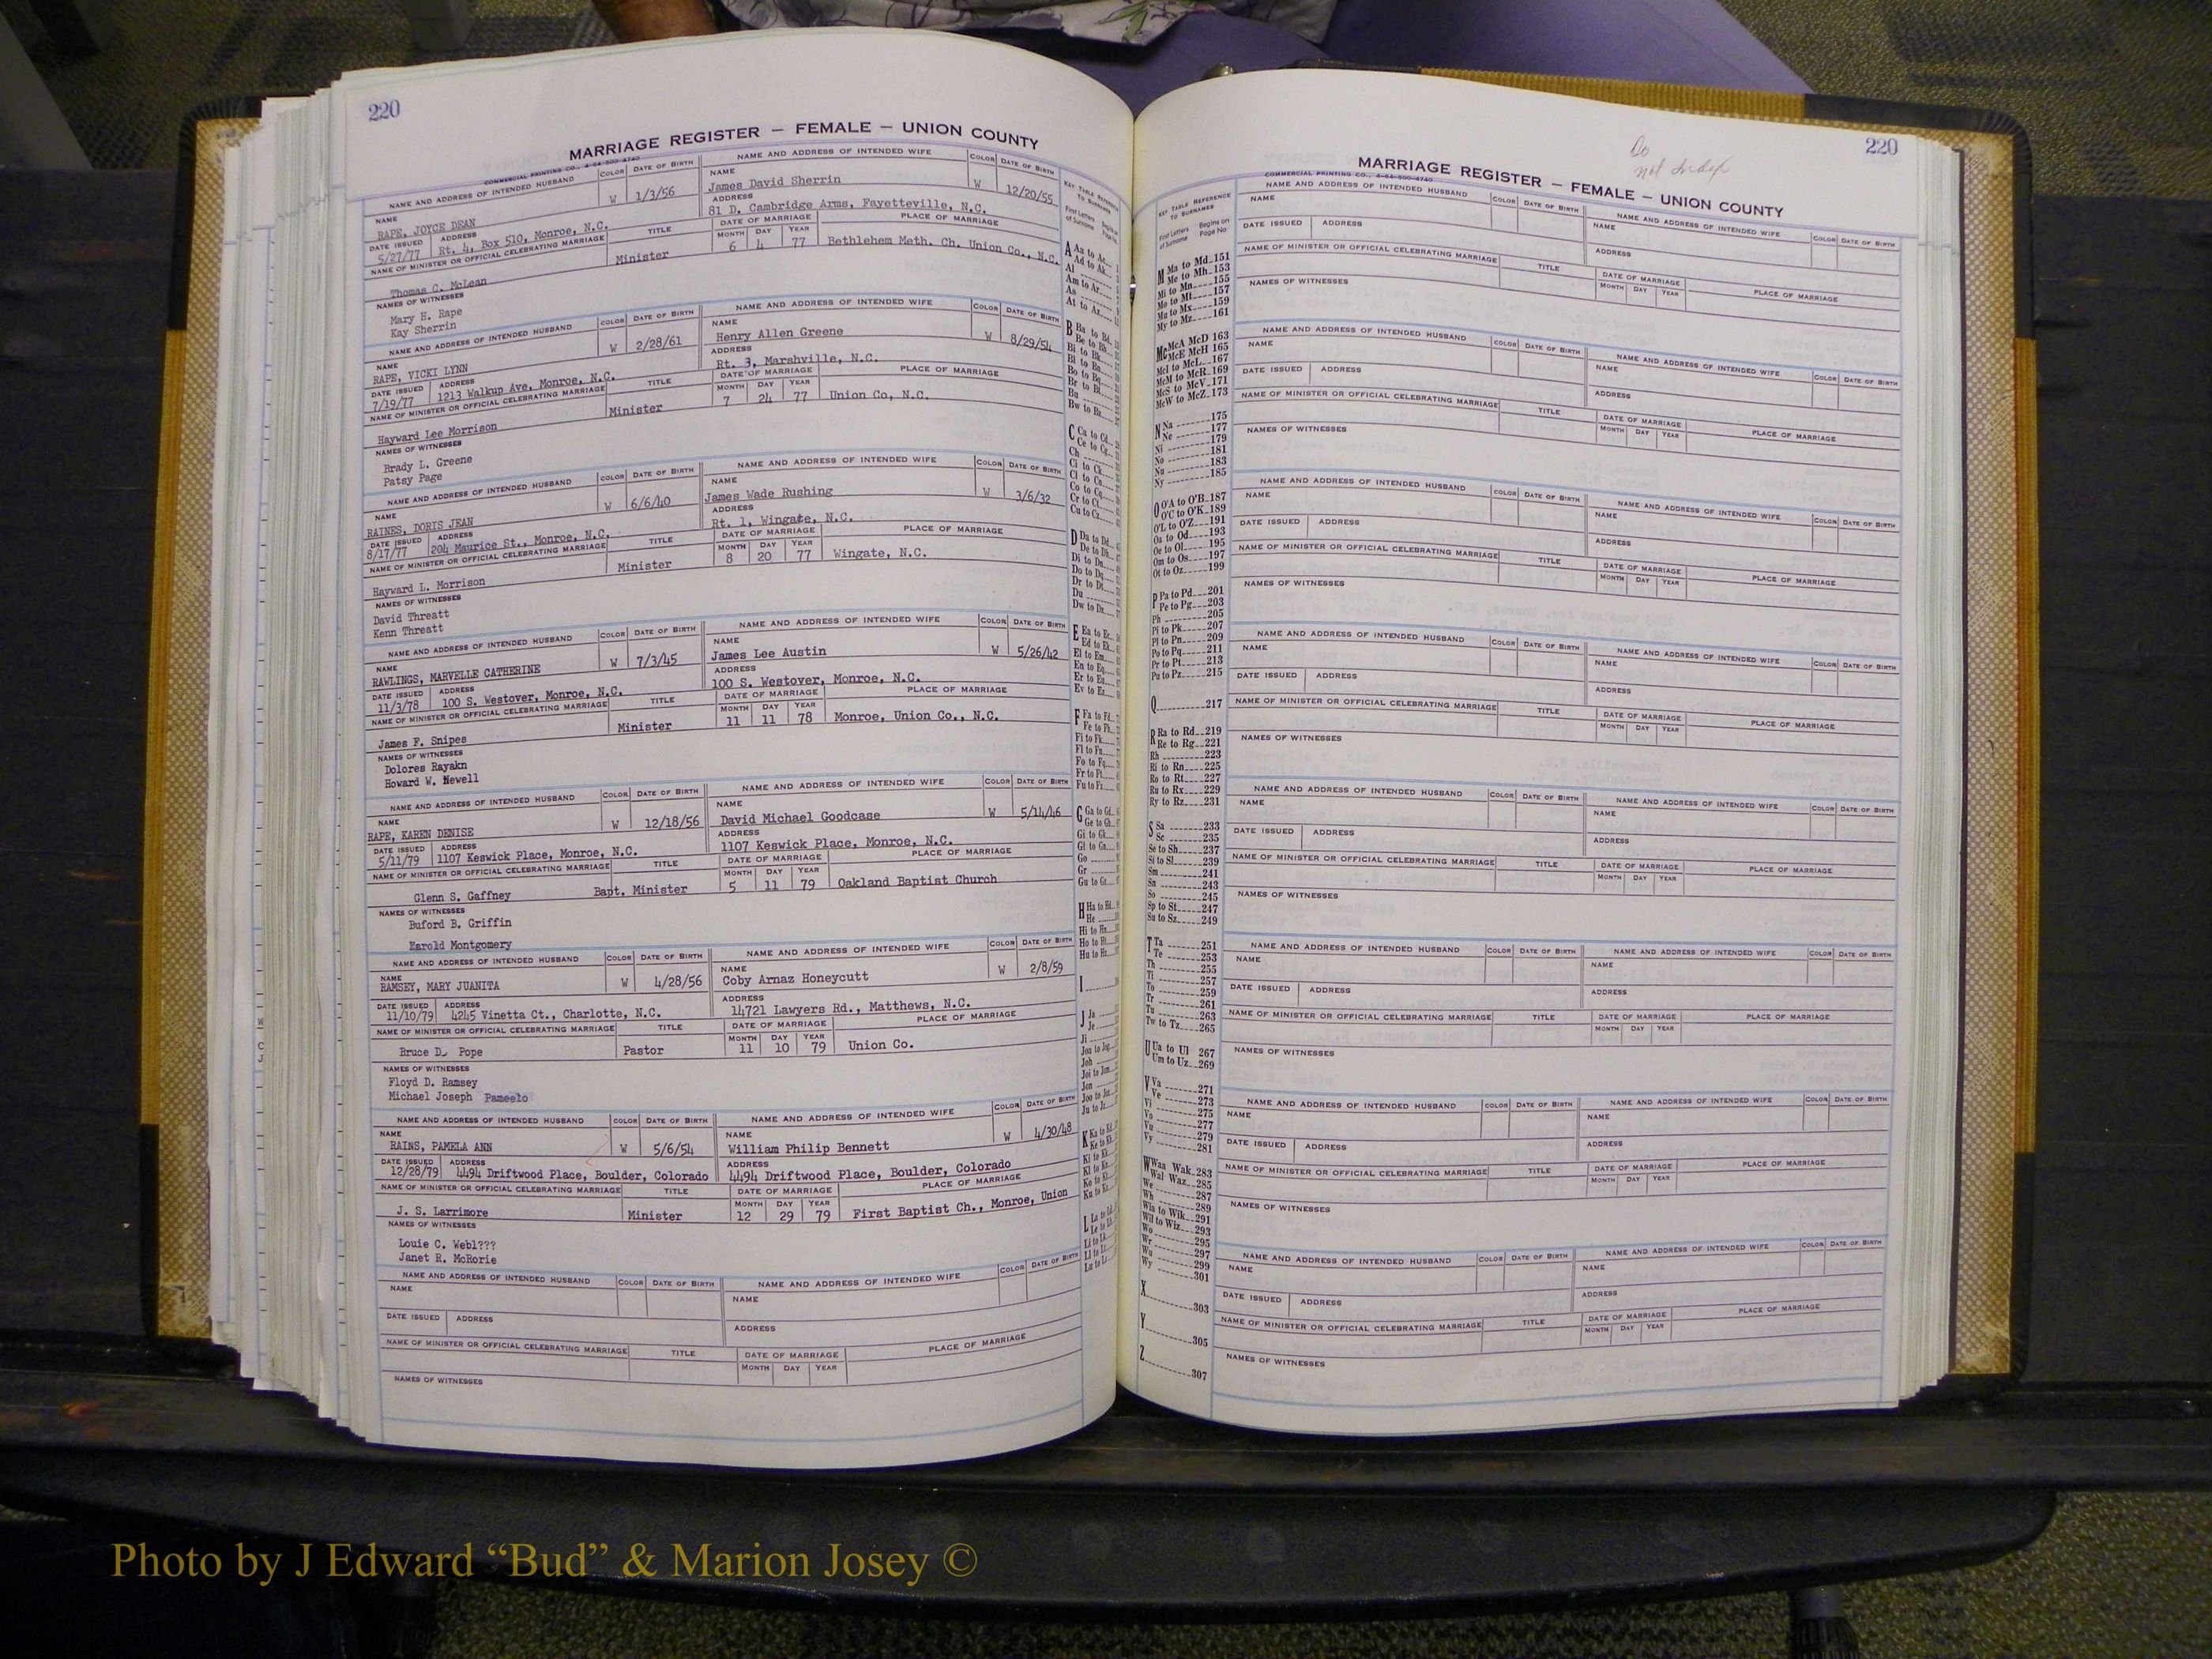 220
MARRIAGE REGISTER — FEMALE — UNION COUNTY
COMMERCIAL PRINTING CO., 4-54-500-4740
NAME AND ADDRESS OF INTENDED HUSBAND COLOR DATE OF BIRTH NAME AND ADDRESS OF INTENDED WIFE COLOR DATE OF BIRTH
NAME W 1/3/56 NAME W 12/20/55
RAPE, JOYCE DEAN James David Sherrin
DATE ISSUED ADDRESS ADDRESS
5/27/77 Rt. 4, Box 510, Monroe, N.C. 81 D. Cambridge Arms, Fayetteville, N.C.
NAME OF MINISTER OR OFFICIAL CELEBRATING MARRIAGE TITLE DATE OF MARRIAGE PLACE OF MARRIAGE
MONTH DAY YEAR
Thomas C. McLean Minister 6 4 77 Bethlehem Meth. Ch. Union Co., N.C.
NAMES OF WITNESSES
Mary H. Rape
Kay Sherrin
NAME AND ADDRESS OF INTENDED HUSBAND COLOR DATE OF BIRTH NAME AND ADDRESS OF INTENDED WIFE COLOR DATE OF BIRTH
NAME W 2/28/61 NAME W 8/29/54
RAPE, VICKI LYNN Henry Allen Greene
DATE ISSUED ADDRESS ADDRESS
7/19/77 1213 Walkup Ave, Monroe, N.C. Rt. 3, Marshville, N.C.
NAME OF MINISTER OR OFFICIAL CELEBRATING MARRIAGE TITLE DATE OF MARRIAGE PLACE OF MARRIAGE
MONTH DAY YEAR
Hayward Lee Morrison Minister 7 24 77 Union Co, N.C.
NAMES OF WITNESSES
Brady L. Greene
Patsy Page
NAME AND ADDRESS OF INTENDED HUSBAND COLOR DATE OF BIRTH NAME AND ADDRESS OF INTENDED WIFE COLOR DATE OF BIRTH
NAME W 6/6/40 NAME W 3/6/32
RAINES, DORIS JEAN James Wade Rushing
DATE ISSUED ADDRESS ADDRESS
8/17/77 204 Maurice St., Monroe, N.C. Rt. 1, Wingate, N.C.
NAME OF MINISTER OR OFFICIAL CELEBRATING MARRIAGE TITLE DATE OF MARRIAGE PLACE OF MARRIAGE
MONTH DAY YEAR
Hayward L. Morrison Minister 8 20 77 Wingate, N.C.
NAMES OF WITNESSES
David Threatt
Kenn Threatt
NAME AND ADDRESS OF INTENDED HUSBAND COLOR DATE OF BIRTH NAME AND ADDRESS OF INTENDED WIFE COLOR DATE OF BIRTH
NAME W 7/3/45 NAME W 5/26/42
RAWLINGS, MARVELLE CATHERINE James Lee Austin
DATE ISSUED ADDRESS ADDRESS
11/3/78 100 S. Westover, Monroe, N.C. 100 S. Westover, Monroe, N.C.
NAME OF MINISTER OR OFFICIAL CELEBRATING MARRIAGE TITLE DATE OF MARRIAGE PLACE OF MARRIAGE
MONTH DAY YEAR
James F. Snipes Minister 11 11 78 Monroe, Union Co., N.C.
NAMES OF WITNESSES
Dolores Rayakn
Howard W. Newell
NAME AND ADDRESS OF INTENDED HUSBAND COLOR DATE OF BIRTH NAME AND ADDRESS OF INTENDED WIFE COLOR DATE OF BIRTH
NAME W 12/18/56 NAME W 5/14/46
RAPE, KAREN DENISE David Michael Goodcase
DATE ISSUED ADDRESS ADDRESS
5/11/79 1107 Keswick Place, Monroe, N.C. 1107 Keswick Place, Monroe, N.C.
NAME OF MINISTER OR OFFICIAL CELEBRATING MARRIAGE TITLE DATE OF MARRIAGE PLACE OF MARRIAGE
MONTH DAY YEAR
Glenn S. Gaffney Bapt. Minister 5 11 79 Oakland Baptist Church
NAMES OF WITNESSES
Buford B. Griffin
Harold Montgomery
NAME AND ADDRESS OF INTENDED HUSBAND COLOR DATE OF BIRTH NAME AND ADDRESS OF INTENDED WIFE COLOR DATE OF BIRTH
NAME W 4/28/56 NAME W 2/8/59
RAMSEY, MARY JUANITA Coby Arnaz Honeycutt
DATE ISSUED ADDRESS ADDRESS
11/10/79 4245 Vinetta Ct., Charlotte, N.C. 14721 Lawyers Rd., Matthews, N.C.
NAME OF MINISTER OR OFFICIAL CELEBRATING MARRIAGE TITLE DATE OF MARRIAGE PLACE OF MARRIAGE
MONTH DAY YEAR
Bruce D. Pope Pastor 11 10 79 Union Co.
NAMES OF WITNESSES
Floyd D. Ramsey
Michael Joseph Pameelo
NAME AND ADDRESS OF INTENDED HUSBAND COLOR DATE OF BIRTH NAME AND ADDRESS OF INTENDED WIFE COLOR DATE OF BIRTH
NAME W 5/6/54 NAME W 4/30/48
RAINS, PAMELA ANN William Philip Bennett
DATE ISSUED ADDRESS ADDRESS
12/28/79 4494 Driftwood Place, Boulder, Colorado 4494 Driftwood Place, Boulder, Colorado
NAME OF MINISTER OR OFFICIAL CELEBRATING MARRIAGE TITLE DATE OF MARRIAGE PLACE OF MARRIAGE
MONTH DAY YEAR
J. S. Larrimore Minister 12 29 79 First Baptist Ch., Monroe, Union
NAMES OF WITNESSES
Louie C. Webl???
Janet R. McRorie
NAME AND ADDRESS OF INTENDED HUSBAND COLOR DATE OF BIRTH NAME AND ADDRESS OF INTENDED WIFE COLOR DATE OF BIRTH
NAME NAME
DATE ISSUED ADDRESS ADDRESS
NAME OF MINISTER OR OFFICIAL CELEBRATING MARRIAGE TITLE DATE OF MARRIAGE PLACE OF MARRIAGE
MONTH DAY YEAR
NAMES OF WITNESSES
220
Do
not Index
MARRIAGE REGISTER — FEMALE — UNION COUNTY
COMMERCIAL PRINTING CO., 4-54-500-4740
KEY TABLE REFERENCE
TO SURNAMES
First Letters Begins on
of Surname Page No
M Ma to Md 151
Me to Mh 153
Mi to Mn 155
Mo to Mt 157
Mu to Mx 159
My to Mz 161
Mc McA McD 163
McE McH 165
McI to McL 167
McM to McR 169
McS to McV 171
McW to McZ 173
N Na 175
Ne 177
Ni 179
No 181
Nu 183
Ny 185
O O'A to O'B 187
O'C to O'K 189
O'L to O'Z 191
Oa to Od 193
Oe to Ol 195
Om to Os 197
Ot to Oz 199
P Pa to Pd 201
Pe to Pg 203
Ph 205
Pi to Pk 207
Pl to Pn 209
Po to Pq 211
Pr to Pt 213
Pu to Pz 215
Q 217
R Ra to Rd 219
Re to Rg 221
Rh 223
Ri to Rn 225
Ro to Rt 227
Ru to Rx 229
Ry to Rz 231
S Sa 233
Sc 235
Se to Sh 237
Si to Sl 239
Sm 241
Sn 243
So 245
Sp to St 247
Su to Sz 249
T Ta 251
Te 253
Th 255
Ti 257
To 259
Tr 261
Tu 263
Tw to Tz 265
U Ua to Ul 267
Um to Uz 269
V Va 271
Ve 273
Vi 275
Vo 277
Vu 279
Vy 281
W Waa Wak 283
Wal Waz 285
We 287
Wh 289
Wia to Wik 291
Wil to Wiz 293
Wo 295
Wr 297
Wu 299
Wy 301
X 303
Y 305
Z 307
NAME AND ADDRESS OF INTENDED HUSBAND COLOR DATE OF BIRTH NAME AND ADDRESS OF INTENDED WIFE COLOR DATE OF BIRTH
NAME NAME
DATE ISSUED ADDRESS ADDRESS
NAME OF MINISTER OR OFFICIAL CELEBRATING MARRIAGE TITLE DATE OF MARRIAGE PLACE OF MARRIAGE
MONTH DAY YEAR
NAMES OF WITNESSES
NAME AND ADDRESS OF INTENDED HUSBAND COLOR DATE OF BIRTH NAME AND ADDRESS OF INTENDED WIFE COLOR DATE OF BIRTH
NAME NAME
DATE ISSUED ADDRESS ADDRESS
NAME OF MINISTER OR OFFICIAL CELEBRATING MARRIAGE TITLE DATE OF MARRIAGE PLACE OF MARRIAGE
MONTH DAY YEAR
NAMES OF WITNESSES
NAME AND ADDRESS OF INTENDED HUSBAND COLOR DATE OF BIRTH NAME AND ADDRESS OF INTENDED WIFE COLOR DATE OF BIRTH
NAME NAME
DATE ISSUED ADDRESS ADDRESS
NAME OF MINISTER OR OFFICIAL CELEBRATING MARRIAGE TITLE DATE OF MARRIAGE PLACE OF MARRIAGE
MONTH DAY YEAR
NAMES OF WITNESSES
NAME AND ADDRESS OF INTENDED HUSBAND COLOR DATE OF BIRTH NAME AND ADDRESS OF INTENDED WIFE COLOR DATE OF BIRTH
NAME NAME
DATE ISSUED ADDRESS ADDRESS
NAME OF MINISTER OR OFFICIAL CELEBRATING MARRIAGE TITLE DATE OF MARRIAGE PLACE OF MARRIAGE
MONTH DAY YEAR
NAMES OF WITNESSES
NAME AND ADDRESS OF INTENDED HUSBAND COLOR DATE OF BIRTH NAME AND ADDRESS OF INTENDED WIFE COLOR DATE OF BIRTH
NAME NAME
DATE ISSUED ADDRESS ADDRESS
NAME OF MINISTER OR OFFICIAL CELEBRATING MARRIAGE TITLE DATE OF MARRIAGE PLACE OF MARRIAGE
MONTH DAY YEAR
NAMES OF WITNESSES
NAME AND ADDRESS OF INTENDED HUSBAND COLOR DATE OF BIRTH NAME AND ADDRESS OF INTENDED WIFE COLOR DATE OF BIRTH
NAME NAME
DATE ISSUED ADDRESS ADDRESS
NAME OF MINISTER OR OFFICIAL CELEBRATING MARRIAGE TITLE DATE OF MARRIAGE PLACE OF MARRIAGE
MONTH DAY YEAR
NAMES OF WITNESSES
NAME AND ADDRESS OF INTENDED HUSBAND COLOR DATE OF BIRTH NAME AND ADDRESS OF INTENDED WIFE COLOR DATE OF BIRTH
NAME NAME
DATE ISSUED ADDRESS ADDRESS
NAME OF MINISTER OR OFFICIAL CELEBRATING MARRIAGE TITLE DATE OF MARRIAGE PLACE OF MARRIAGE
MONTH DAY YEAR
NAMES OF WITNESSES
NAME AND ADDRESS OF INTENDED HUSBAND COLOR DATE OF BIRTH NAME AND ADDRESS OF INTENDED WIFE COLOR DATE OF BIRTH
NAME NAME
DATE ISSUED ADDRESS ADDRESS
NAME OF MINISTER OR OFFICIAL CELEBRATING MARRIAGE TITLE DATE OF MARRIAGE PLACE OF MARRIAGE
MONTH DAY YEAR
NAMES OF WITNESSES
Photo by J Edward “Bud” & Marion Josey ©